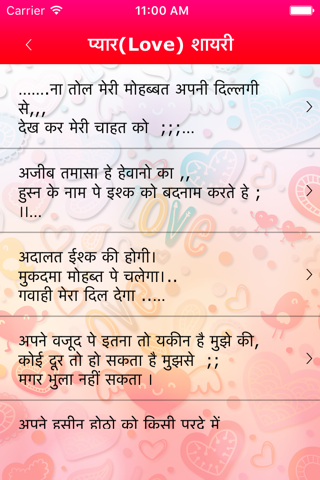 Carrier 11:00 AM
प्यार(Love) शायरी
.......ना तोल मेरी मोहब्बत अपनी दिल्लगी
से,,,
देख कर मेरी चाहत को ;;;...
अजीब तमासा हे हेवानो का ,,
हुस्न के नाम पे इश्क को बदनाम करते हे ;
।।...
अदालत ईश्क की होगी।
मुकदमा मोहब्त पे चलेगा।..
गवाही मेरा दिल देगा .....
अपने वजूद पे इतना तो यकीन है मुझे की,
कोई दूर तो हो सकता है मुझसे ;;
मगर भुला नहीं सकता ।
अपने हसीन होठो को किसी परदे में
LOVE